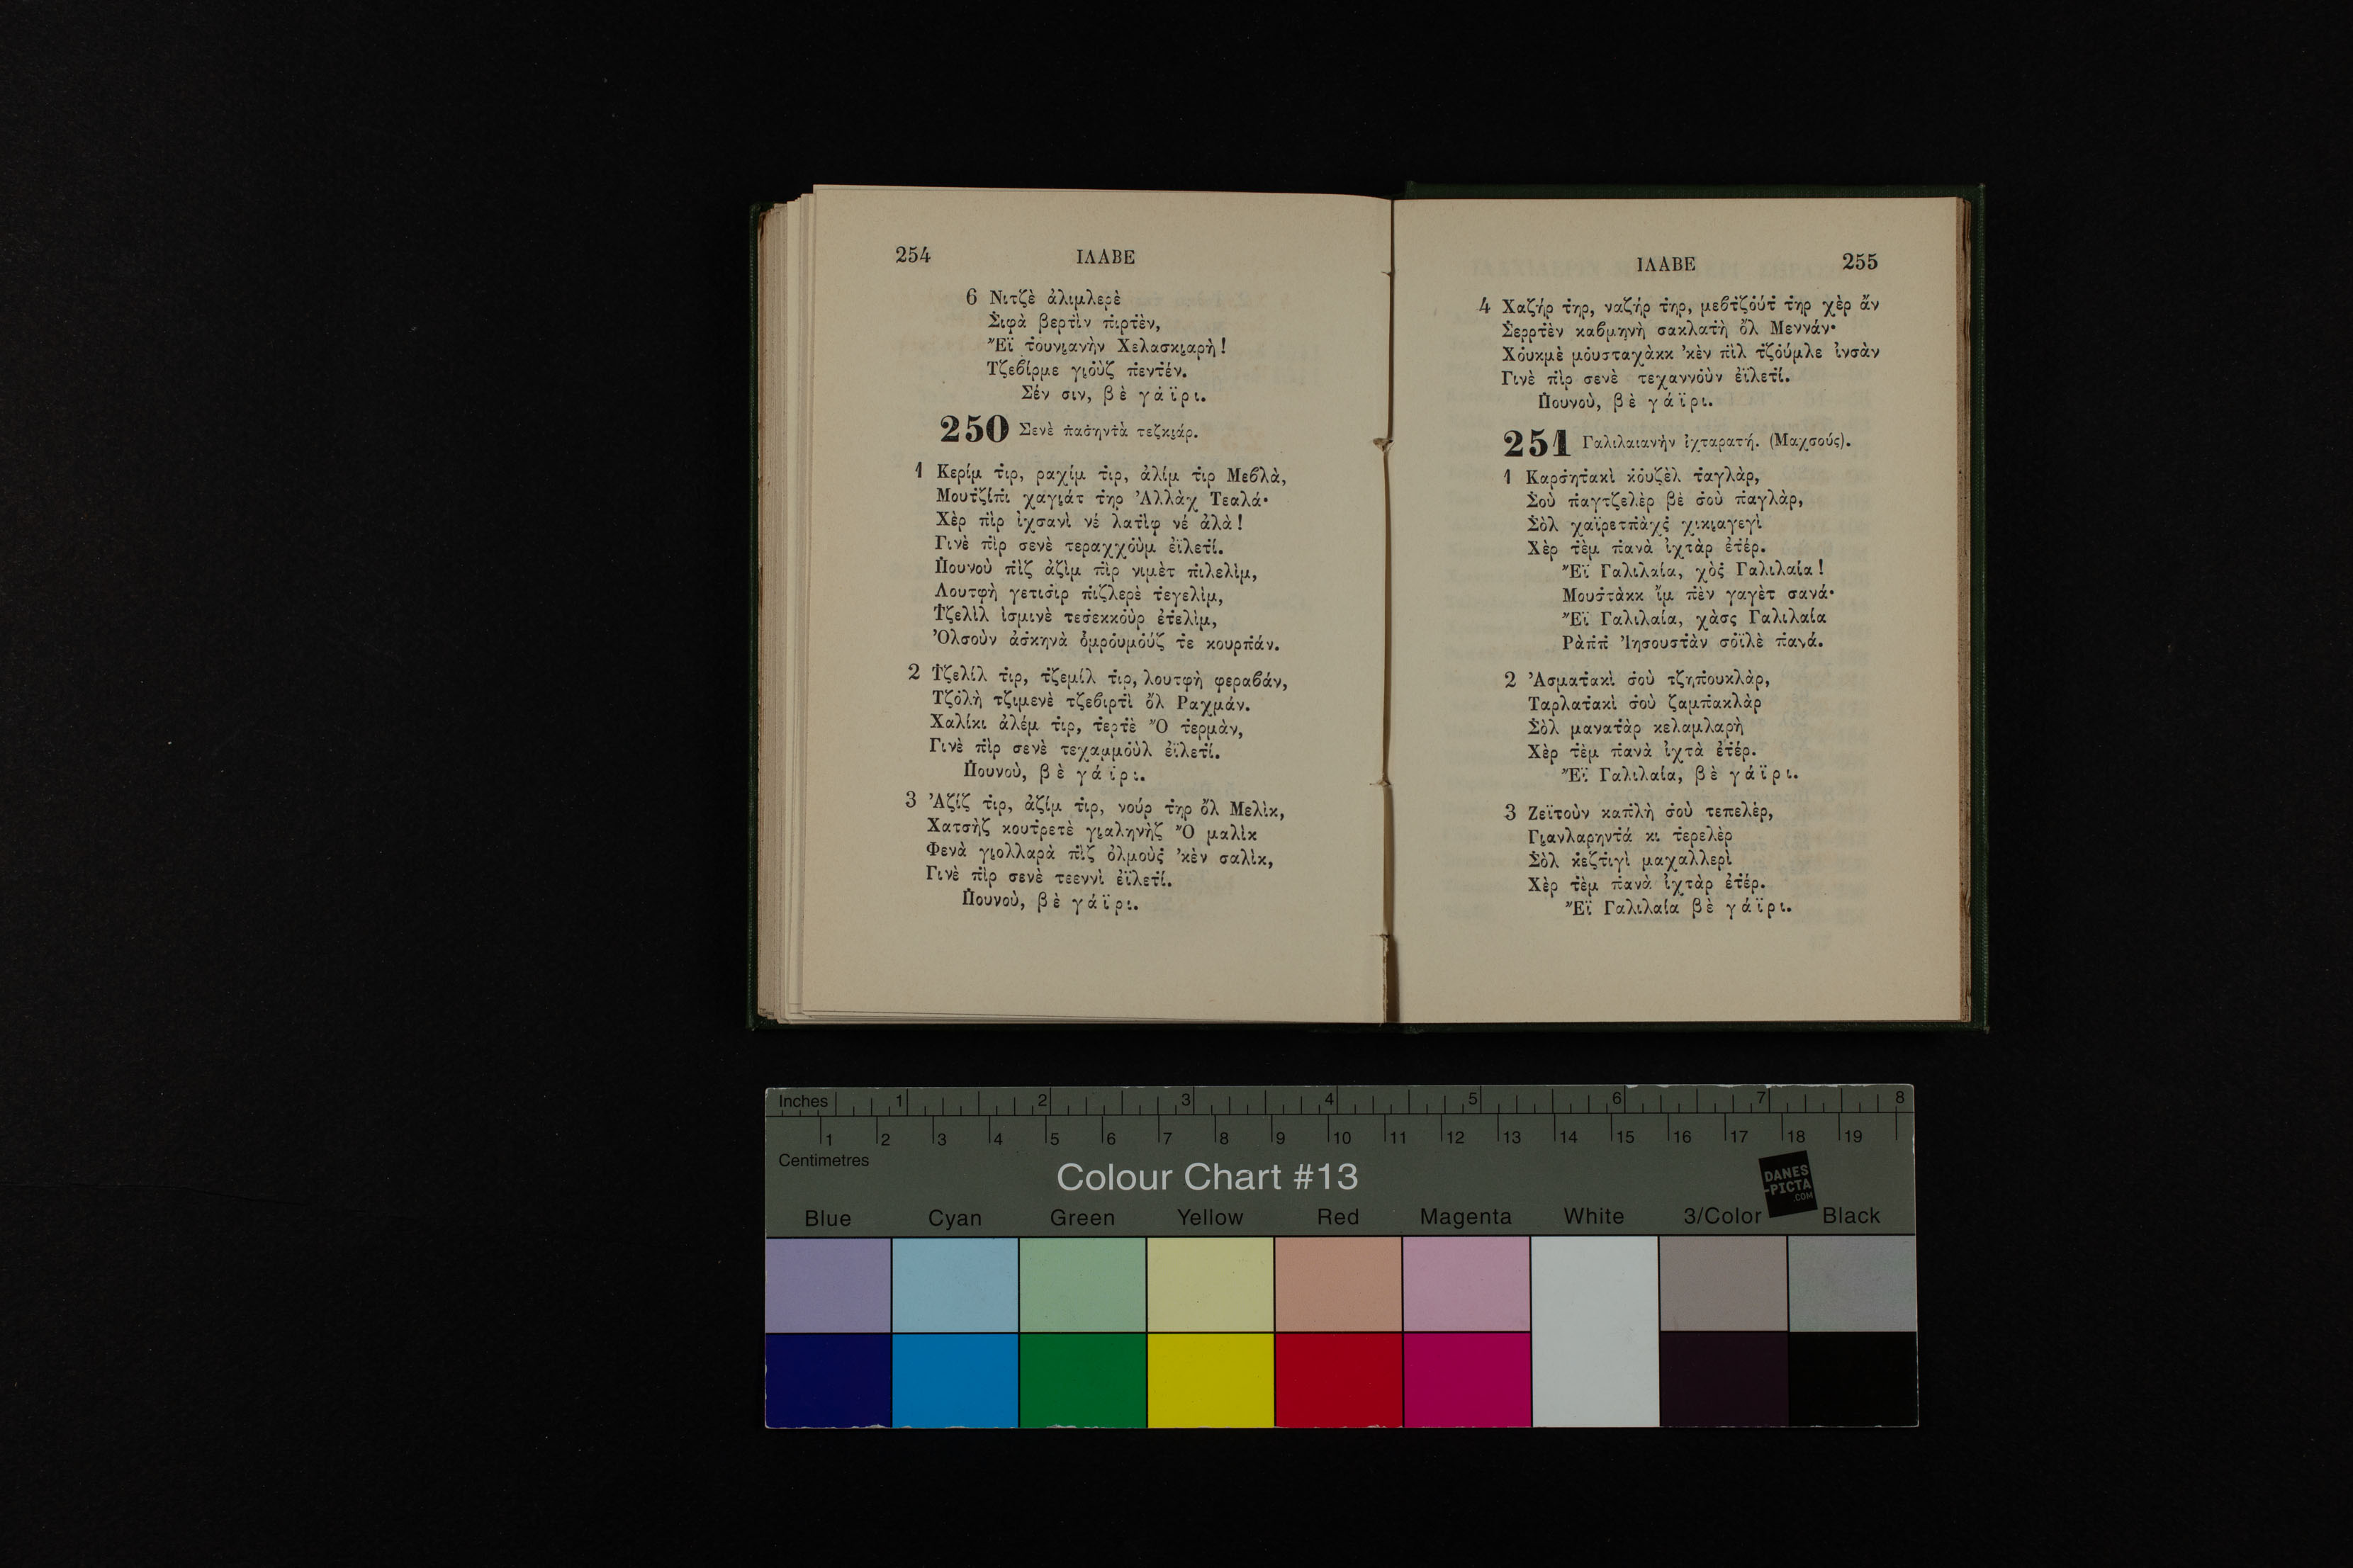 254 ΙΛΑΒΕ
6 Νιτζὲ ἀλιμλερὲ
Σ̇ιφὰ βερτ̇ὶν π̇ιρτ̇ὲν,
Ἔϊ τ̇ουνι̯ανὴν Χελασκι̯αρὴ!
Τζεβίρμε γι̯ο̇ὺζ π̇εντ̇έν.
Σέν σιν, βὲ γάϊρι.
250 Σενὲ π̇ασ̇ηντ̇ὰ τεζκι̯άρ.
1 Κερίμ τ̇ιρ, ραχίμ τ̇ιρ, ἀλίμ τ̇ιρ Μεβλὰ,
Μουτ̇ζίπ̇ι χαγι̯άτ τ̇ηρ Ἀλλὰχ Τεαλά·
Χὲρ π̇ὶρ ἰχσανὶ νέ λατὶφ νέ ἀλὰ!
Γινὲ π̇ὶρ σενὲ τεραχχο̇ὺμ ἐϊλετ̇ί.
Π̇ουνοὺ π̇ὶζ ἀζὶμ π̇ὶρ νιμὲτ π̇ιλελὶμ,
Λουτφὴ γετισ̇ὶρ π̇ιζλερὲ τ̇εγελὶμ,
Τ̇ζελὶλ ἰσμινὲ τεσ̇εκκο̇ὺρ ἐτ̇ελὶμ,
Ὀλσοὺν ἀσ̇κηνὰ ὀ̇μρο̇υμο̇ύζ τ̇ε κουρπ̇άν.
2 Τ̇ζελίλ τ̇ιρ, τ̇ζεμίλ τ̇ιρ, λουτφὴ φεραβάν,
Τζο̇λὴ τζιμενὲ τζεβιρτ̇ὶ ὄλ Ραχμάν.
Χαλίκι ἀλέμ τ̇ιρ, τ̇ερτ̇ὲ Ὂ τ̇ερμὰν,
Γινὲ π̇ὶρ σενὲ τεχαμμο̇ὺλ ἐϊλετ̇ί.
Π̇ουνοὺ, βὲ γάϊρι.
3 Ἀζίζ τ̇ιρ, ἀζίμ τ̇ιρ, νούρ τ̇ηρ ὄλ Μελὶκ,
Χατσὴζ κουτ̇ρετὲ γι̯αληνὴζ Ὂ μαλὶκ
Φενὰ γι̯ολλαρὰ π̇ὶζ ὀλμοὺς̇ 'κὲν σαλὶκ,
Γινὲ π̇ὶρ σενὲ τεεννὶ ἐϊλετ̇ί.
Π̇ουνοὺ, βὲ γάϊρι.
ΙΛΑΒΕ 255
4 Χαζήρ τ̇ηρ, ναζήρ τ̇ηρ, μεβτ̇ζο̇ύτ̇ τ̇ηρ χὲρ ἄν
Σ̇ερρτ̇ὲν καβμηνὴ σακλατ̇ὴ ὄλ Μεννάν·
Χο̇υκμὲ μο̇υσταχὰκκ 'κὲν π̇ὶλ τ̇ζο̇ύμλε ἰνσὰν
Γινὲ π̇ὶρ σενὲ τεχαννο̇ὺν ἐϊλετ̇ί.
Π̇ουνοὺ, βὲ γάϊρι.
251 Γαλιλαιανὴν ἰχταρατή. (Μαχσούς).
1 Καρσ̇ητακὶ κ̇ο̇υζὲλ τ̇αγλὰρ,
Σ̇οὺ π̇αγτζελὲρ βὲ σ̇οὺ π̇αγλὰρ,
Σ̇ὸλ χαϊρετπ̇ὰχς̇ χικι̯αγεγὶ
Χὲρ τ̇ὲμ π̇ανὰ ἰχτὰρ ἐτ̇έρ.
Ἔϊ Γαλιλαία, χὸς̇ Γαλιλαία!
Μουσ̇τὰκκ ἴμ π̇ὲν γαγὲτ σανά·
Ἔϊ Γαλιλαία, χὰσς Γαλιλαία
Ρὰπ̇π̇ Ἰησουστ̇ὰν σο̇ϊλὲ π̇ανά.
2 Ἀσματ̇ακὶ σ̇οὺ τζηπ̇ουκλὰρ,
Ταρλατ̇ακὶ σ̇οὺ ζαμπ̇ακλὰρ
Σ̇ὸλ μανατ̇ὰρ κελαμλαρὴ
Χὲρ τ̇ὲμ π̇ανὰ ἰχτὰ ἐτ̇έρ.
Ἔϊ Γαλιλαία, βὲ γάϊρι.
3 Ζεϊτοὺν καπλὴ σ̇οὺ τεπελὲρ,
Γι̯ανλαρηντ̇ά κι τ̇ερελὲρ
Σ̇ὸλ κ̇εζτ̇ιγὶ μαχαλλερὶ
Χὲρ τ̇ὲμ π̇ανὰ ἰχτὰρ ἐτ̇έρ.
Ἔϊ Γαλιλαία βὲ γάϊρι.
Inches 1 2 3 4 5 6 7 8
1 2 3 4 5 6 7 8 9 10 11 12 13 14 15 16 17 18 19
Centimetres
Colour Chart #13
DANES
-PICTA
.COM
Blue Cyan Green Yellow Red Magenta White 3/Color Black